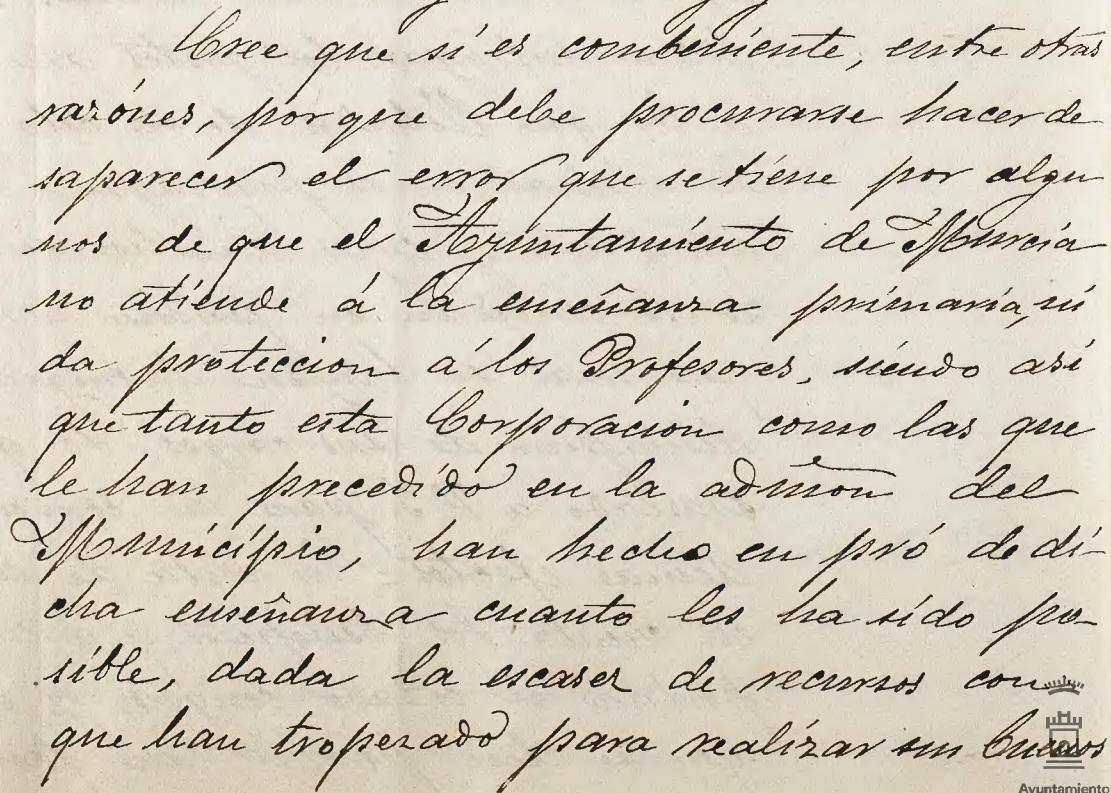 Cree que sí es combeniente, entre otras
razónes, por que debe procurarse hacer de
saparecer el error que se tiene por algu
nos de que el Ayuntamiento de Murcia
no atiende á la enseñanza primaria, ni
da proteccion á los Profesores, siendo así
que tanto esta Corporacion como las que
le han precedido en la admon del
Municipio, han hecho en pró de di-
cha enseñanza cuanto les ha sido po-
sible, dada la escasez de recursos con
que han tropezado para realizar sus buenos
Ayuntamiento